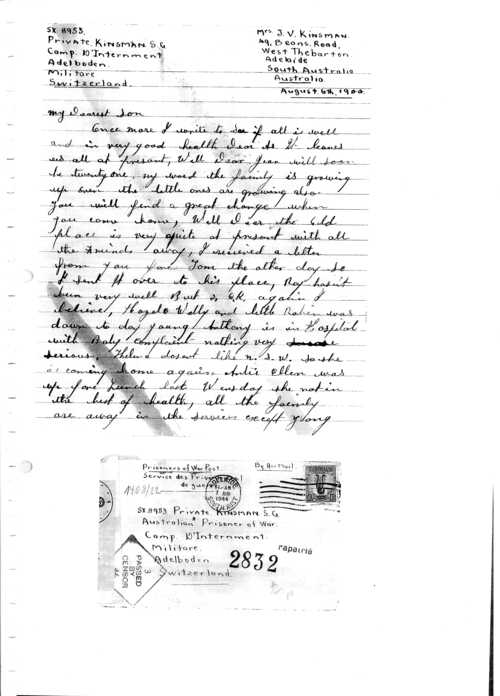 SX 8953.
Private. KINSMAN S.G
Camp. D'Internment
Adelboden.
Militare
Switzerland.
Mrs J. V. KINSMAN.
49, Beans, Road,
West Thebarton.
Adelaide
South Australia
Australia.
August 6th, 1944.
my Dearest Son
Once more I write to see if all is well
and in very good health Dear As it leaves
us all at present, Well Dear Jean will soon
be twenty one, my word the family is growing
up even the little ones are growing also
you will find a great change when
you come home, Well Dear the Old
place is very quite at present with all
the friends away, I received a letter
from you for Tom the other day so
I sent it over to his place, Ray hasn't
been very well But is O.K. again I
believe, Hazel & Wally and little Robin was
down to day young Anthony is in Hospital
with Baby complaint nothing very
serious, Thelma dosent like N.S.W. so she
is coming home again Antie Ellen was
up for lunch last Wensday she not in
the best of health, all the family
are away in the services except young
Prisoners of War Post
Service des Prisonniers
de guerre
By Air Mail.
SX 8953 Private KINSMAN S.G.
Australian Prisoner of War.
Camp. D'Internment.
Militare.
Adelboden.
Switzerland.
2832
rapatrié
3
PASSED
BY
CENSOR